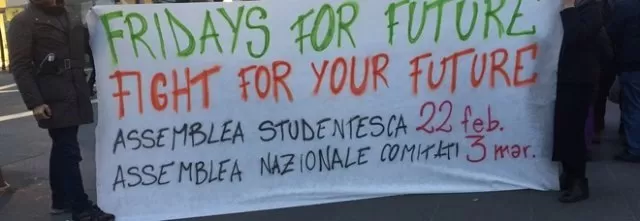 FRIDAYS FOR FUTURE
FIGHT FOR YOUR FUTURE
ASSEMBLEA STUDENTESCA 22 feb.
ASSEMBLEA NAZIONALE COMITATI 3 mar.